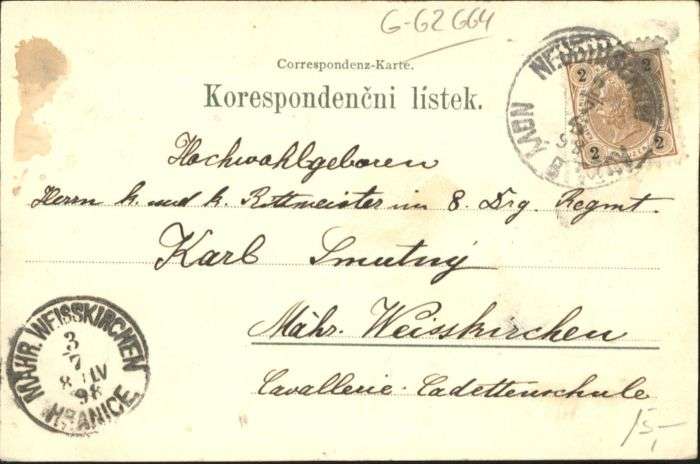 G-62664
Correspondenz-Karte.
Korespondenčni lístek.
2 2
2 2
Hochwohlgeboren
Herrn k. und k. Rittmeister im 8. Drg. Regmt.
Karl Smutný
Mähr. Weisskirchen
Cavallerie-Cadettenschule
MÄHR. WEISSKIRCHEN
3
7
98
HRANICE
15,-